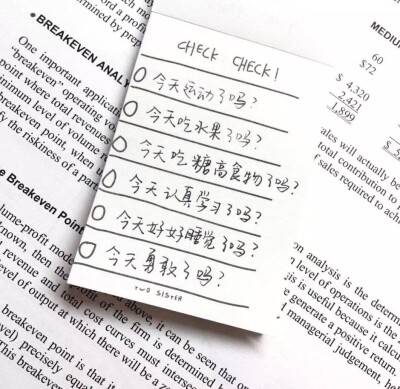 ord a profi
mined by prep
• BREAKEVEN ANALY
One important applicat
"breakeven" operating vo
point where total revenues
minimum level of volume n
breakeven point, when u
fy the riskiness of a par
he Breakeven Point
lume-profit mode
nown, then the
revenue and total cost curves must intersect
level of output at which there will be a
breakeven point is that i
vel) precisely equal
This breakev
CHECK CHECK!
今天运动了吗?
今天吃水果了吗?
今天吃糖高食物了吗?
今天认真学习了吗?
今天好好睡觉了吗?
今天勇敢了吗?
TWO SISTER
MEDIUM
60
$72
$ 4,320
2,421
1,899
ales will actually be
total contribution to
f sales required to achi
on analysis is the determ
n level of operations is the
is is useful because it calcul
generate a positive return.
managerial judgement
profit of the firm is determined
above, it can be seen that